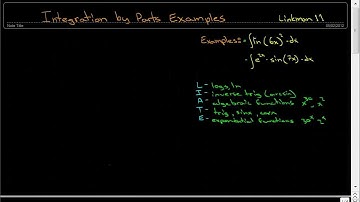 Integration by Parts Examples
Linkman 11
Note Title
Examples:- ∫ln(6x)³·dx
-∫e²ˣ·sin(7x)·dx
L - logs, ln
I - inverse trig (arcsin)
A - algebraic functions x³⁰ - x²
T - trig, sinx, cosx
E - exponential functions 30ˣ 2ˣ